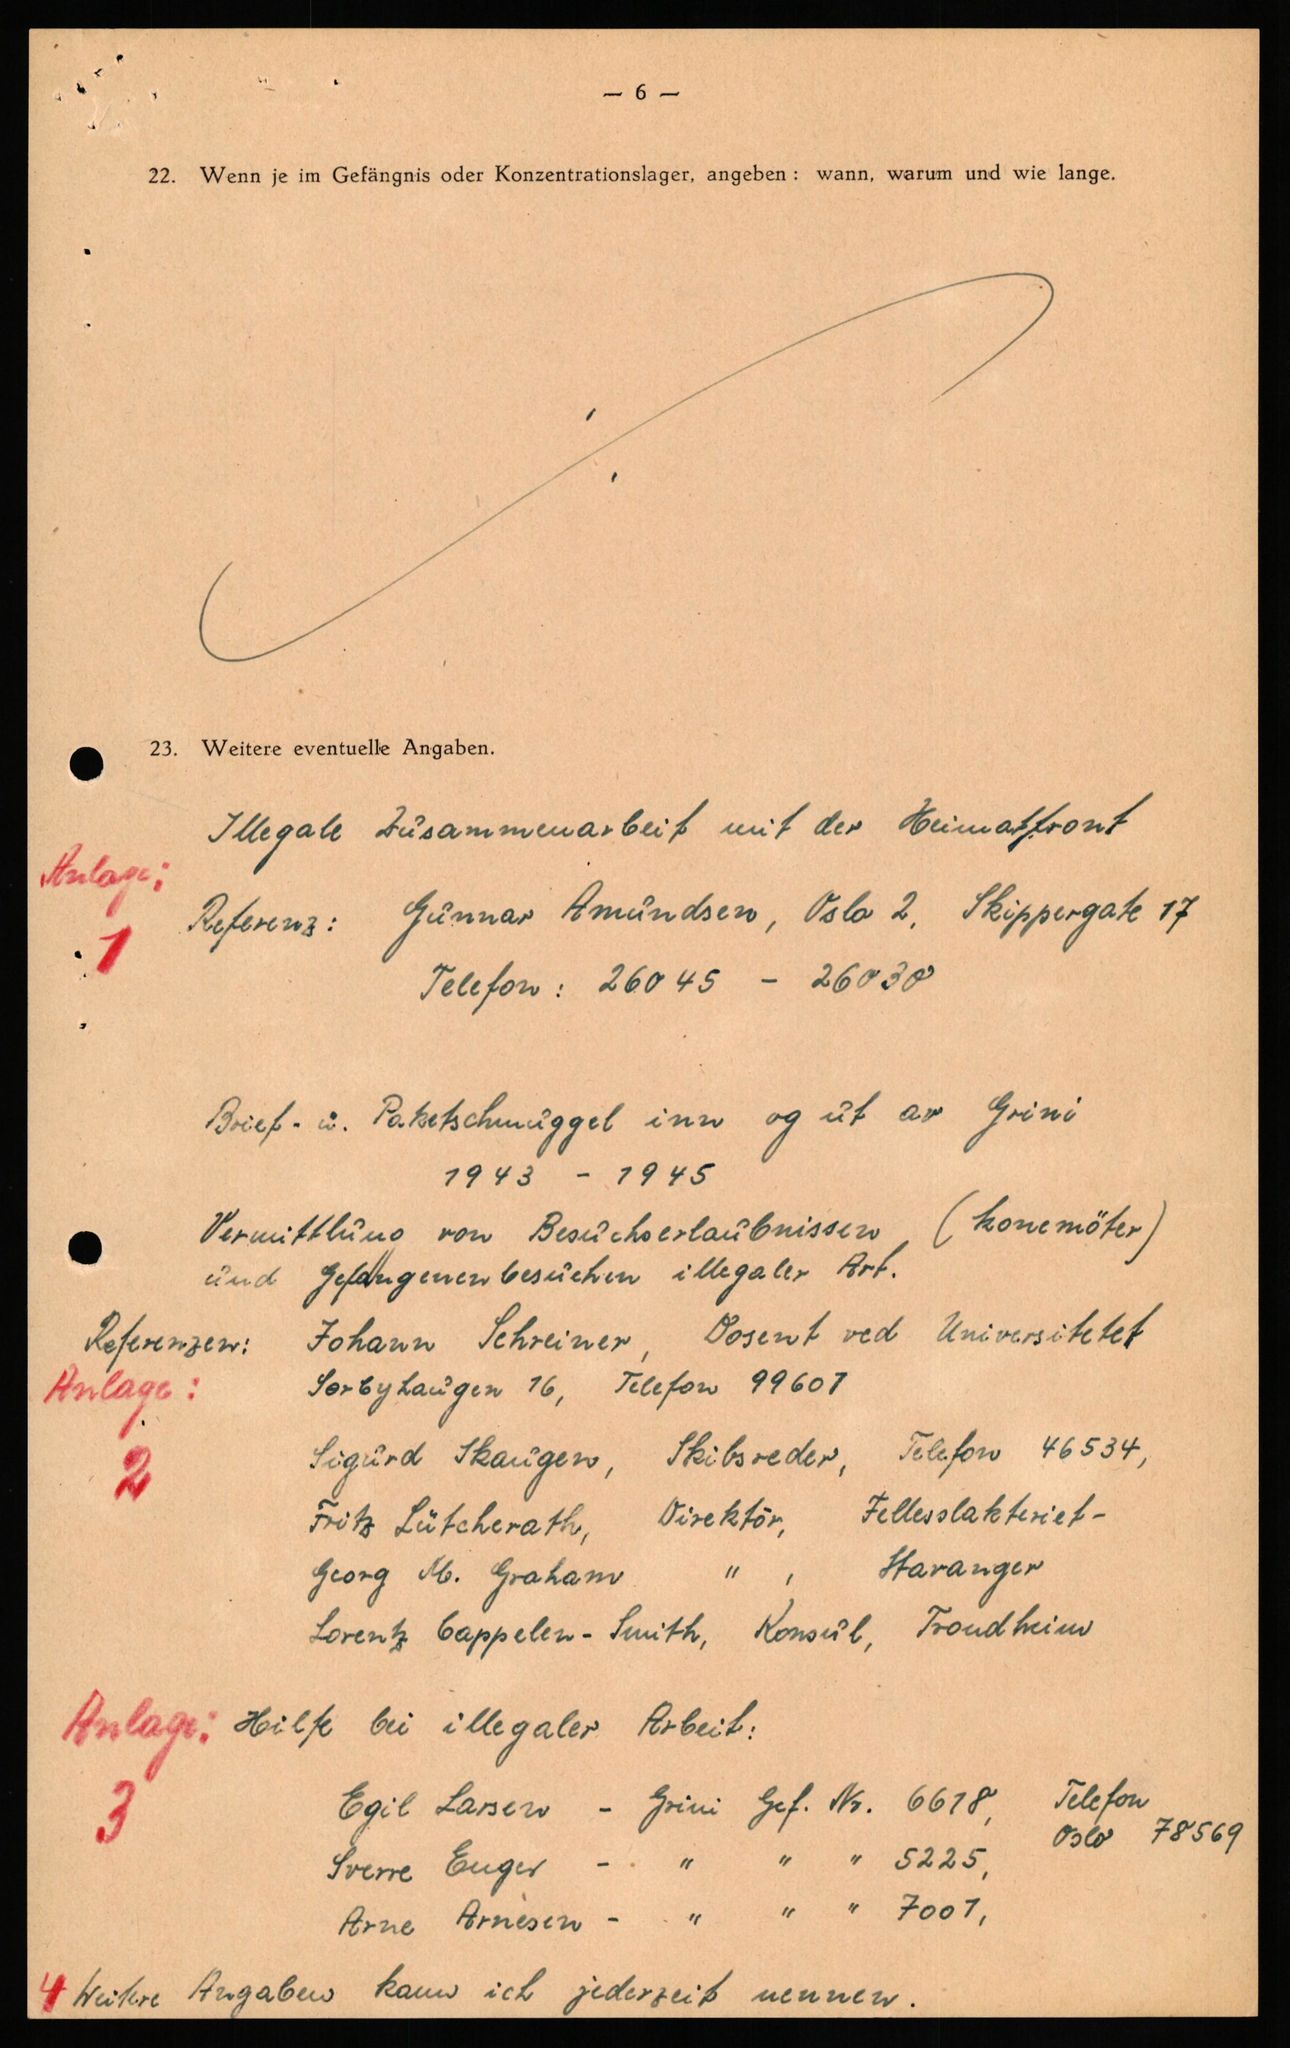 — 6 —
22. Wenn je im Gefängnis oder Konzentrationslager, angeben: wann, warum und wie lange.
23. Weitere eventuelle Angaben.
Illegale Zusammenarbeit mit der Heimatfront
Anlage:
1
Referenz: Gunnar Amundsen, Oslo 2, Skippergate 17
Telefon: 26045 - 26030
Brief- u. Paketschmuggel inn og ut av Grini
1943 - 1945
Vermittlung von Besuchserlaubnissen (konemöter)
und Gefangenenbesuchen illegaler Art.
Referenzen: Johann Schreiner, Dosent ved Universitetet
Anlage: Sorbyhaugen 16, Telefon 99601
2
Sigurd Skaugen, Skibsreder, Telefon 46534,
Fritz Lütcherath, Direktör, Fellesslakteriet-
Georg M. Graham " , Stavanger
Lorentz Cappelen-Smith, Konsul, Trondheim
Anlage: Hilfe bei illegaler Arbeit:
3
Egil Larsen - Grini Gef. Nr. 6618, Telefon
Oslo 78569
Sverre Enger - " " " 5225,
Arne Arnesen - " " " 7001,
4 Weitere Angaben kann ich jederzeit nennen.